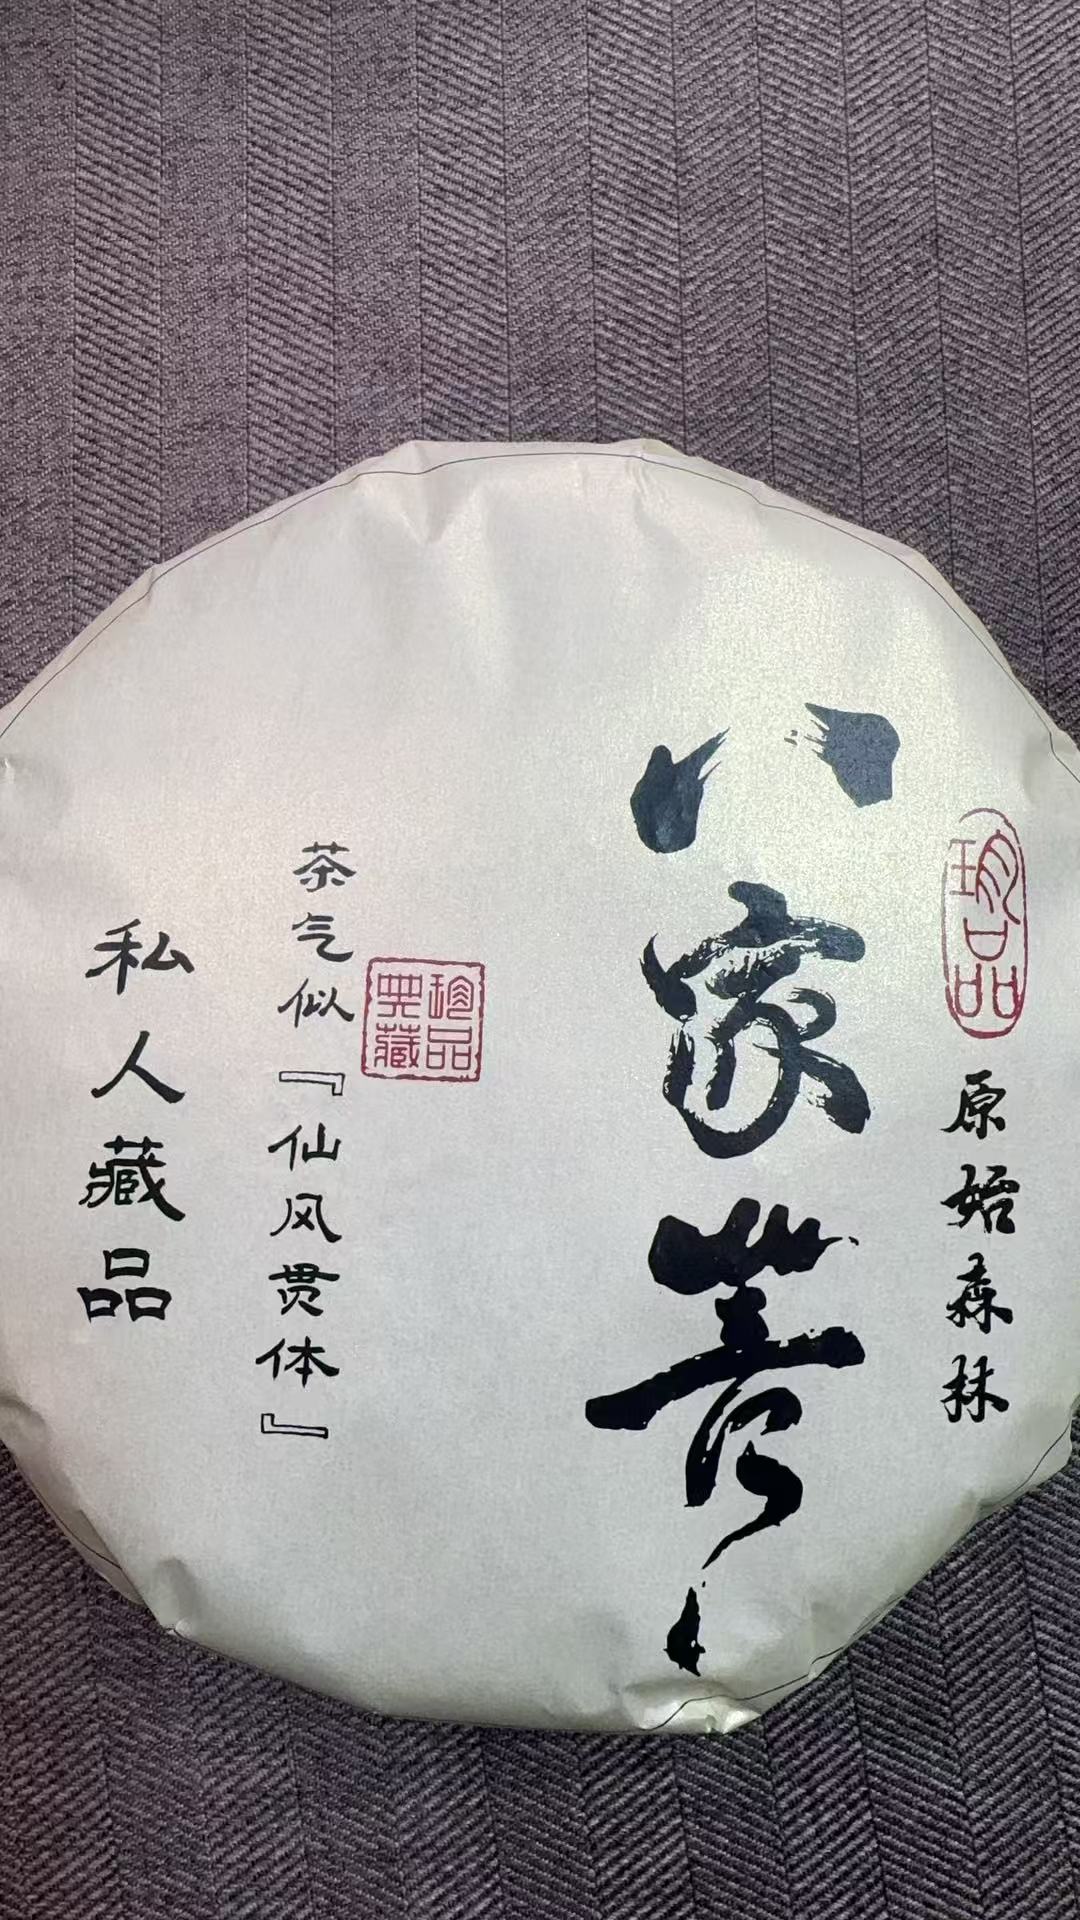 珍品
原始森林
八家菁
珍品典藏
茶气似『仙风贯体』
私人藏品